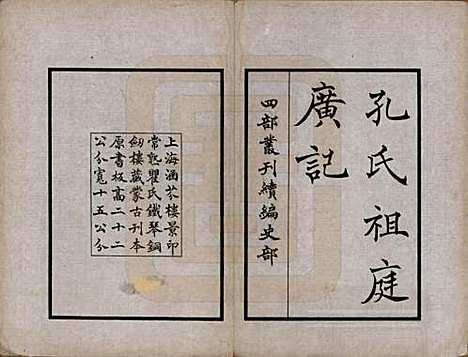 孔氏祖庭
廣記
四部叢刊續編史部
上海涵芬樓景印
常熟瞿氏鐵琴銅
劍樓藏蒙古刊本
原書板高二十二
公分寬十五公分